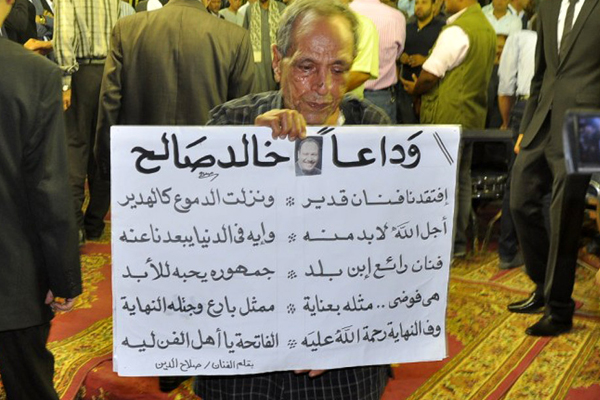 وداعاً خالد صالح
إفتقدنا فنان قدير ** ونزلت الدموع كالهدير
أجل الله لابد منه ** وإيه فى الدنيا يبعدنا عنه
فنان رائع إبن بلد ** جمهوره يحبه للأبد
هى فوضى .. مثله بعناية ** ممثل بارع وجتله النهاية
وفى النهاية رحمة الله عليه ** الفاتحة يا أهل الفن ليه
بقلم الفنان / صلاح الدين